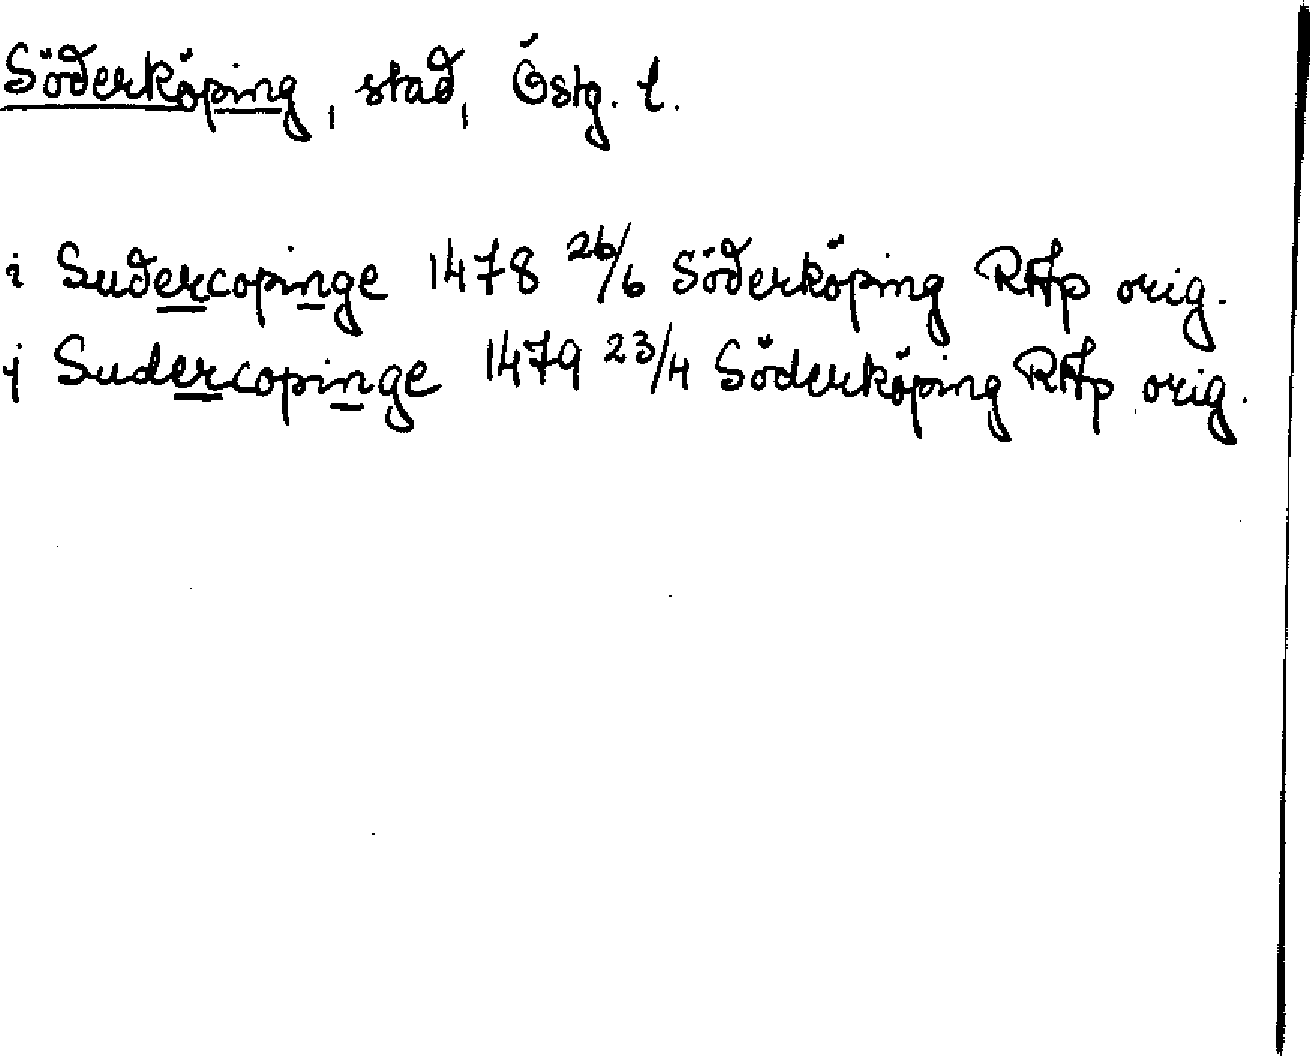 Söderköping, stad, Östg. l.
i Sudercopinge 1478 26/6 Söderköping RAp orig.
j Sudercopinge 1479 23/4 Söderköping RAp orig.